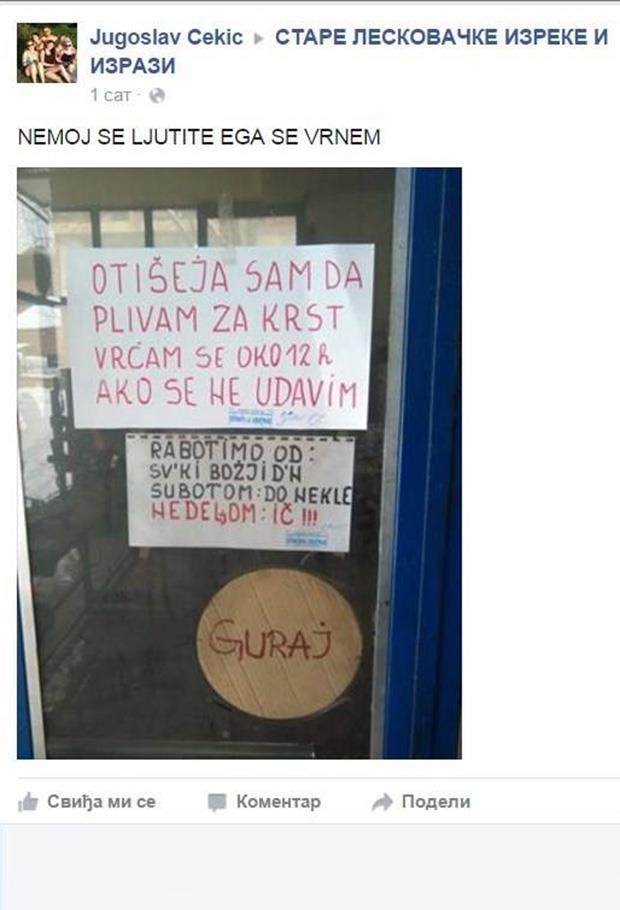 Jugoslav Cekic ▸ СТАРЕ ЛЕСКОВАЧКЕ ИЗРЕКЕ И
ИЗРАЗИ
1 сат ·
NEMOJ SE LJUTITE EGA SE VRNEM
OTIŠEJA SAM DA
PLIVAM ZA KRST
VRĆAM SE OKO 12 h
AKO SE НE UDAVIM
RABOTIMO OD:
SV'KI BOŽJI D'N
SUBOTOM: DO НEKLE
НEDEљOM: IČ !!!
GURAJ
Свиђа ми се
Коментар
Подели